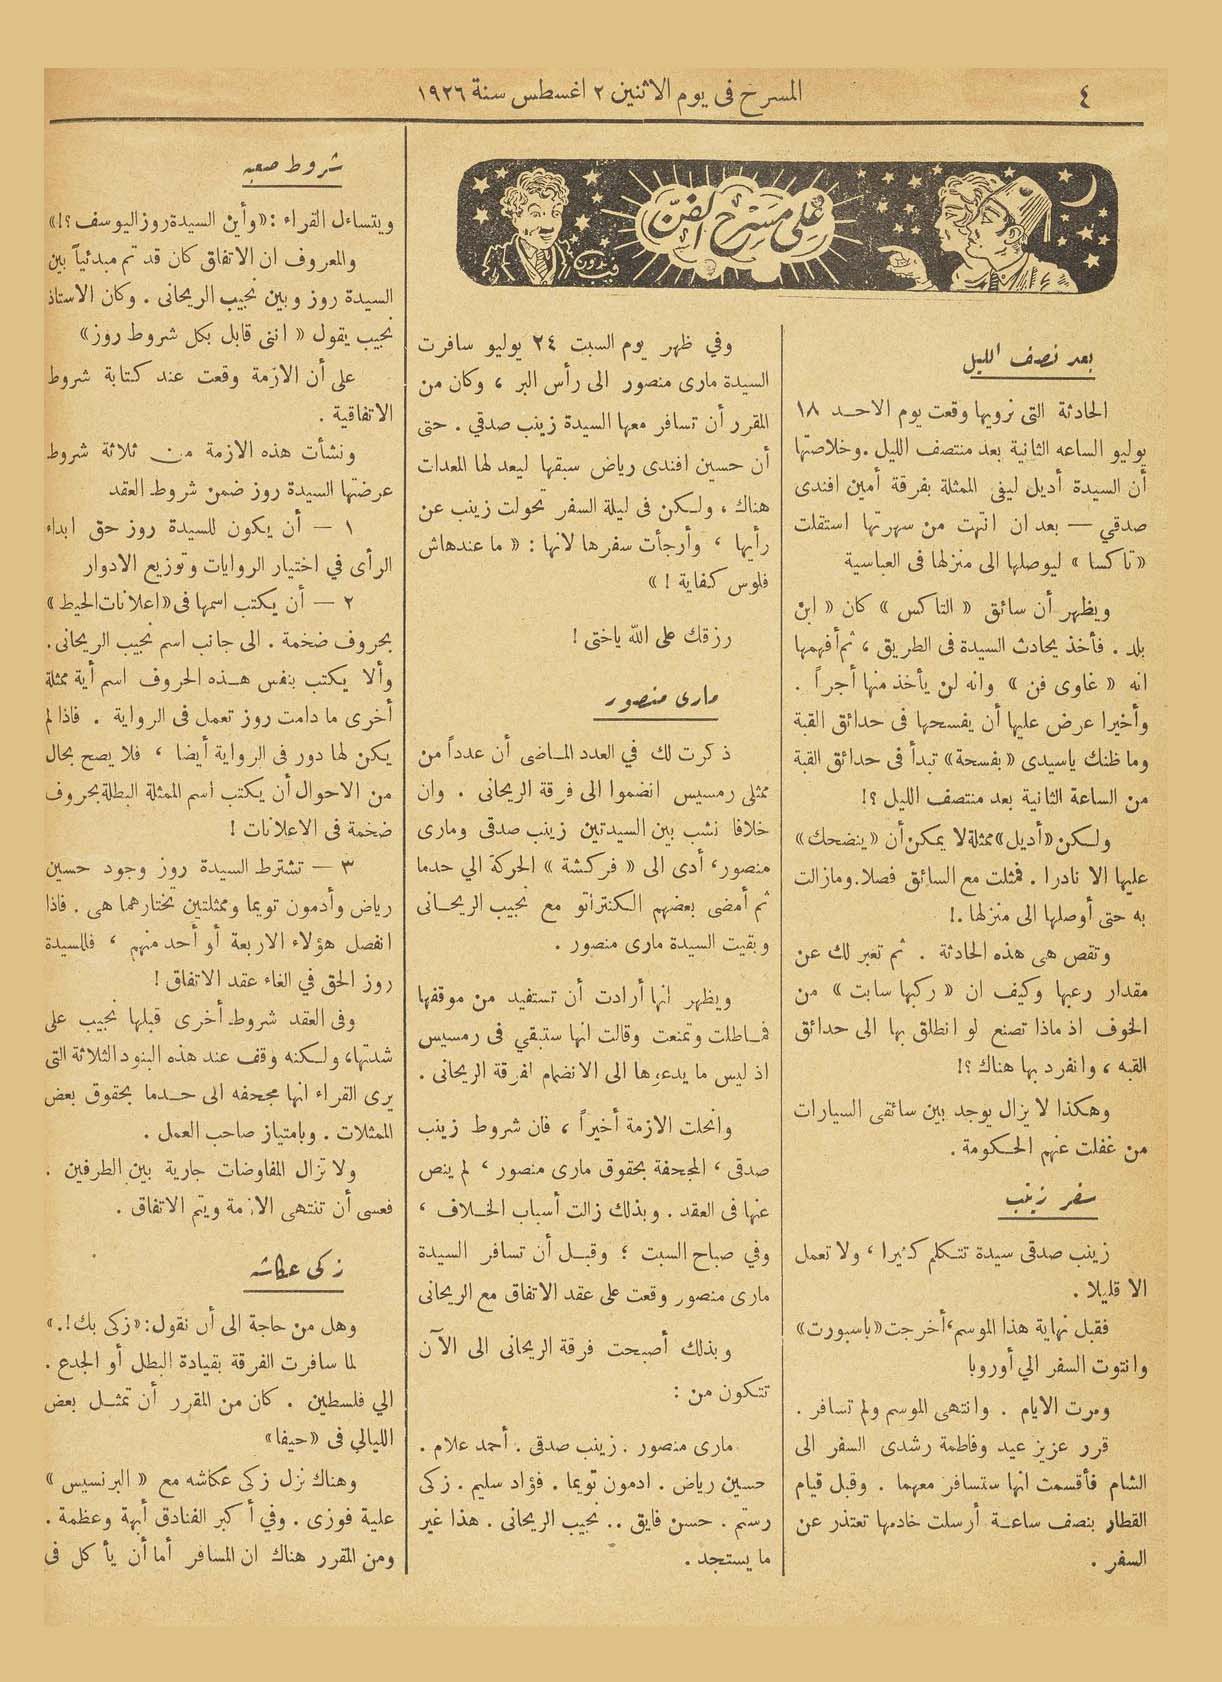 ٤
المسرح فى يوم الاثنين ٢ اغسطس سنة ١٩٢٦
على مسرح الفن
فيدون
بعد نصف الليل
الحادثة التى نرويها وقعت يوم الاحد ١٨
يوليو الساعه الثانية بعد منتصف الليل. وخلاصتها
أن السيدة أديل ليفى الممثلة بفرقة أمين افندى
صدقي — بعد ان انتهت من سهرتها استقلت
«تاكسا» ليوصلها الى منزلها فى العباسية
ويظهر أن سائق «التاكس» كان «ابن
بلد. فأخذ يحادث السيدة فى الطريق، ثم أفهمها
انه «غاوى فن» وانه لن يأخذ منها أجراً.
وأخيرا عرض عليها أن يفسحها فى حدائق القبة
وما ظنك ياسيدى «بفسحة» تبدأ فى حدائق القبة
من الساعة الثانية بعد منتصف الليل ؟!
ولكن «أديل» ممثلة لا يمكن أن «ينضحك»
عليها الا نادرا. فمثلت مع السائق فصلا. ومازالت
به حتى أوصلها الى منزلها.!
وتقص هى هذه الحادثة. ثم تعبر لك عن
مقدار رعبها وكيف ان «ركبها سابت» من
الخوف اذ ماذا تصنع لو انطلق بها الى حدائق
القبه، وانفرد بها هناك ؟!
وهكذا لا يزال يوجد بين سائقى السيارات
من غفلت عنهم الحكومة.
سفر زينب
زينب صدقى سيدة تتكلم كثيرا، ولا تعمل
الا قليلا.
فقبل نهاية هذا الموسم، أخرجت «باسبورت»
وانتوت السفر الي أوروبا
ومرت الايام. وانتهى الموسم ولم تسافر.
قرر عزيز عيد وفاطمة رشدى السفر الى
الشام فأقسمت انها ستسافر معهما. وقبل قيام
القطار بنصف ساعة أرسلت خادمها تعتذر عن
السفر.
وفي ظهر يوم السبت ٢٤ يوليو سافرت
السيدة مارى منصور الى رأس البر، وكان من
المقرر أن تسافر معها السيدة زينب صدقي. حتى
أن حسين افندى رياض سبقها ليعد لها المعدات
هناك، ولكن فى ليلة السفر تحولت زينب عن
رأيها، وأرجأت سفرها لانها: «ما عندهاش
فلوس كفاية!»
رزقك على الله ياختى!
مارى منصور
ذكرت لك في العدد الماضى أن عدداً من
ممثلى رمسيس انضموا الى فرقة الريحانى. وان
خلافا نشب بين السيدتين زينب صدقى ومارى
منصور، أدى الى «فركشة» الحركة الي حدما
ثم أمضى بعضهم الكنتراتو مع نجيب الريحانى
وبقيت السيدة مارى منصور.
ويظهر انها أرادت أن تستفيد من موقفها
فماطلت وتمنعت وقالت انها ستبقي فى رمسيس
اذ ليس ما يدعوها الى الانضمام لفرقة الريحانى.
وانحلت الازمة أخيراً، فان شروط زينب
صدقى، المجحفة بحقوق مارى منصور، لم ينص
عنها فى العقد. وبذلك زالت أسباب الخلاف،
وفي صباح السبت؛ وقبل أن تسافر السيدة
مارى منصور وقعت على عقد الاتفاق مع الريحانى
وبذلك أصبحت فرقة الريحانى الى الآن
تتكون من:
مارى منصور. زينب صدقى. أحمد علام.
حسين رياض. ادمون تويما. فؤاد سليم. زكى
رستم. حسن فايق.. نجيب الريحانى. هذا غير
ما يستجد.
شروط صعبه
ويتساءل القراء: «وأين السيدة روز اليوسف؟!»
والمعروف ان الاتفاق كان قد تم مبدئياً بين
السيدة روز وبين نجيب الريحانى. وكان الاستاذ
نجيب يقول «اننى قابل بكل شروط روز»
على أن الازمة وقعت عند كتابة شروط
الاتفاقية.
ونشأت هذه الازمة من ثلاثة شروط
عرضتها السيدة روز ضمن شروط العقد
١ — أن يكون للسيدة روز حق ابداء
الرأى في اختيار الروايات وتوزيع الادوار
٢ — أن يكتب اسمها فى «اعلانات الحيط»
بحروف ضخمة. الى جانب اسم نجيب الريحانى.
وألا يكتب بنفس هذه الحروف اسم أية ممثلة
أخرى ما دامت روز تعمل فى الرواية. فاذا لم
يكن لها دور فى الرواية أيضا، فلا يصح بحال
من الاحوال أن يكتب اسم الممثلة البطلة بحروف
ضخمة فى الاعلانات!
٣ — تشترط السيدة روز وجود حسين
رياض وأدمون تويما وممثلتين تختارهما هى. فاذا
انفصل هؤلاء الاربعة أو أحد منهم، فللسيدة
روز الحق في الغاء عقد الاتفاق!
وفى العقد شروط أخرى قبلها نجيب على
شدتها، ولكنه وقف عند هذه البنود الثلاثة التى
يرى القراء انها مجحفه الى حدما بحقوق بعض
الممثلات. وبامتياز صاحب العمل.
ولا تزال المفاوضات جارية بين الطرفين.
فعسى أن تنتهى الازمة ويتم الاتفاق.
زكى عكاشه
وهل من حاجة الى أن نقول: «زكى بك!.»
لما سافرت الفرقة بقيادة البطل أو الجدع.
الي فلسطين. كان من المقرر أن تمثل بعض
الليالي فى «حيفا»
وهناك نزل زكى عكاشه مع «البرنسيس»
علية فوزى. وفي أكبر الفنادق أبهة وعظمة.
ومن المقرر هناك ان المسافر أما أن يأكل فى